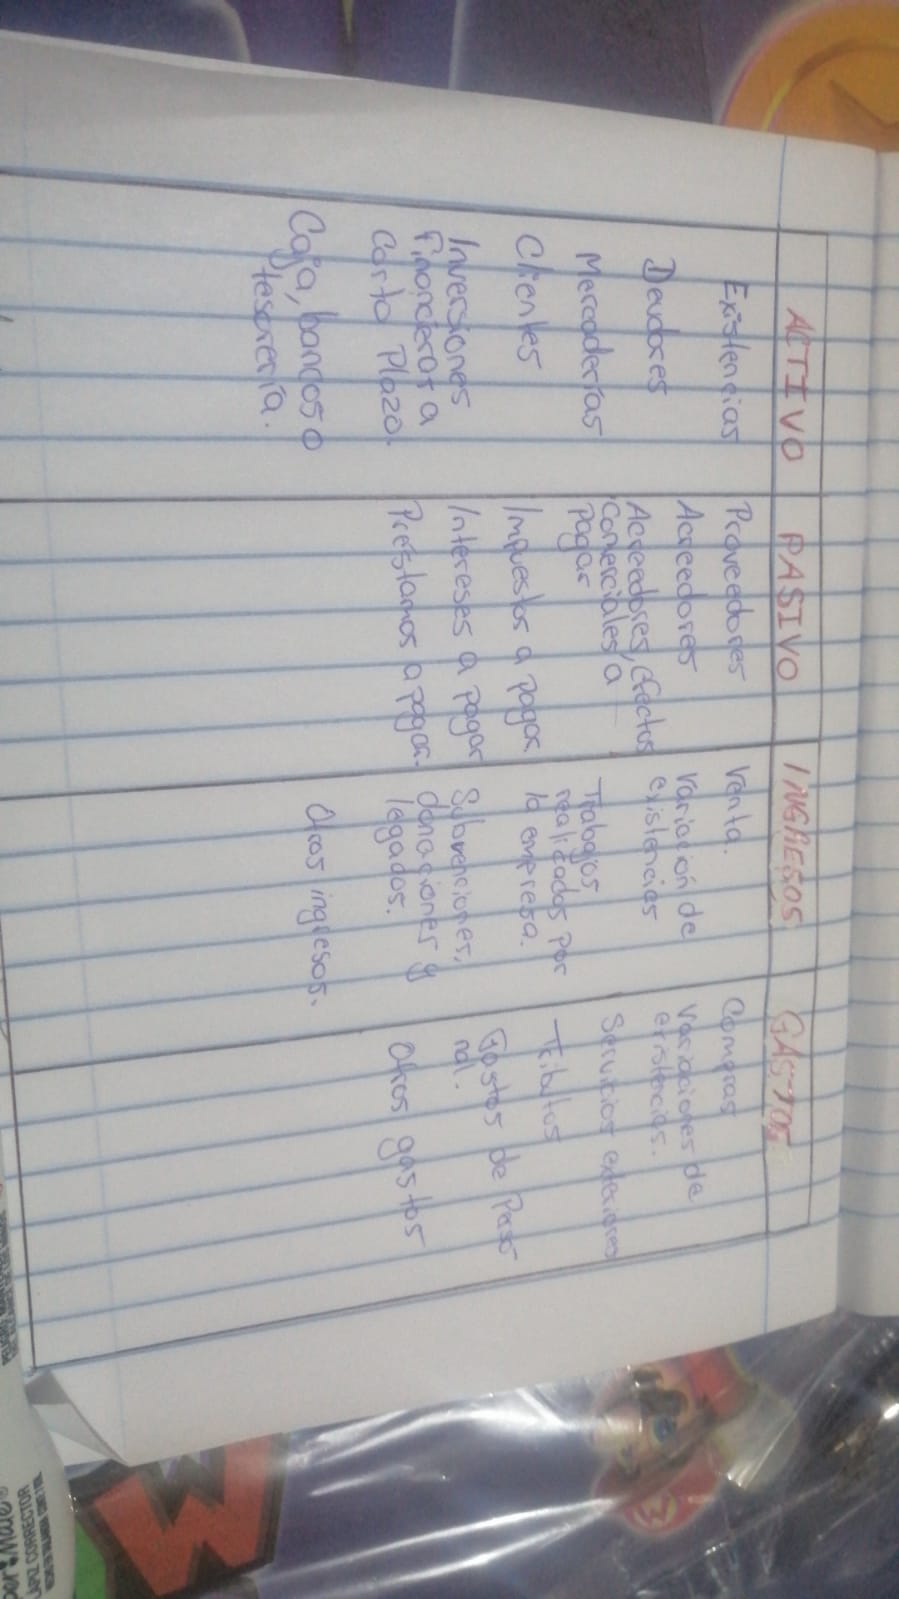 ACTIVO PASIVO INGRESOS GASTOS
Existencias
Deudores
Mercaderías
Clientes
Inversiones
Financieras a
Corto Plazo.
Caja, bancos o
tesorería.
Proveedores
Acreedores
Acreedores, efectos
Comerciales a
pagar
Impuestos a pagar
Intereses a pagar
Préstamos a pagar.
Venta.
Variación de
existencias
Trabajos
realizados por
la empresa.
Subvenciones,
donaciones y
legados.
Otros ingresos.
Compras
Variaciones de
existencias.
Servicios exteriores
Tributos
Gastos de Perso
nal.
Otros gastos
per Mate
LAPIZ CORRECTOR
W
M